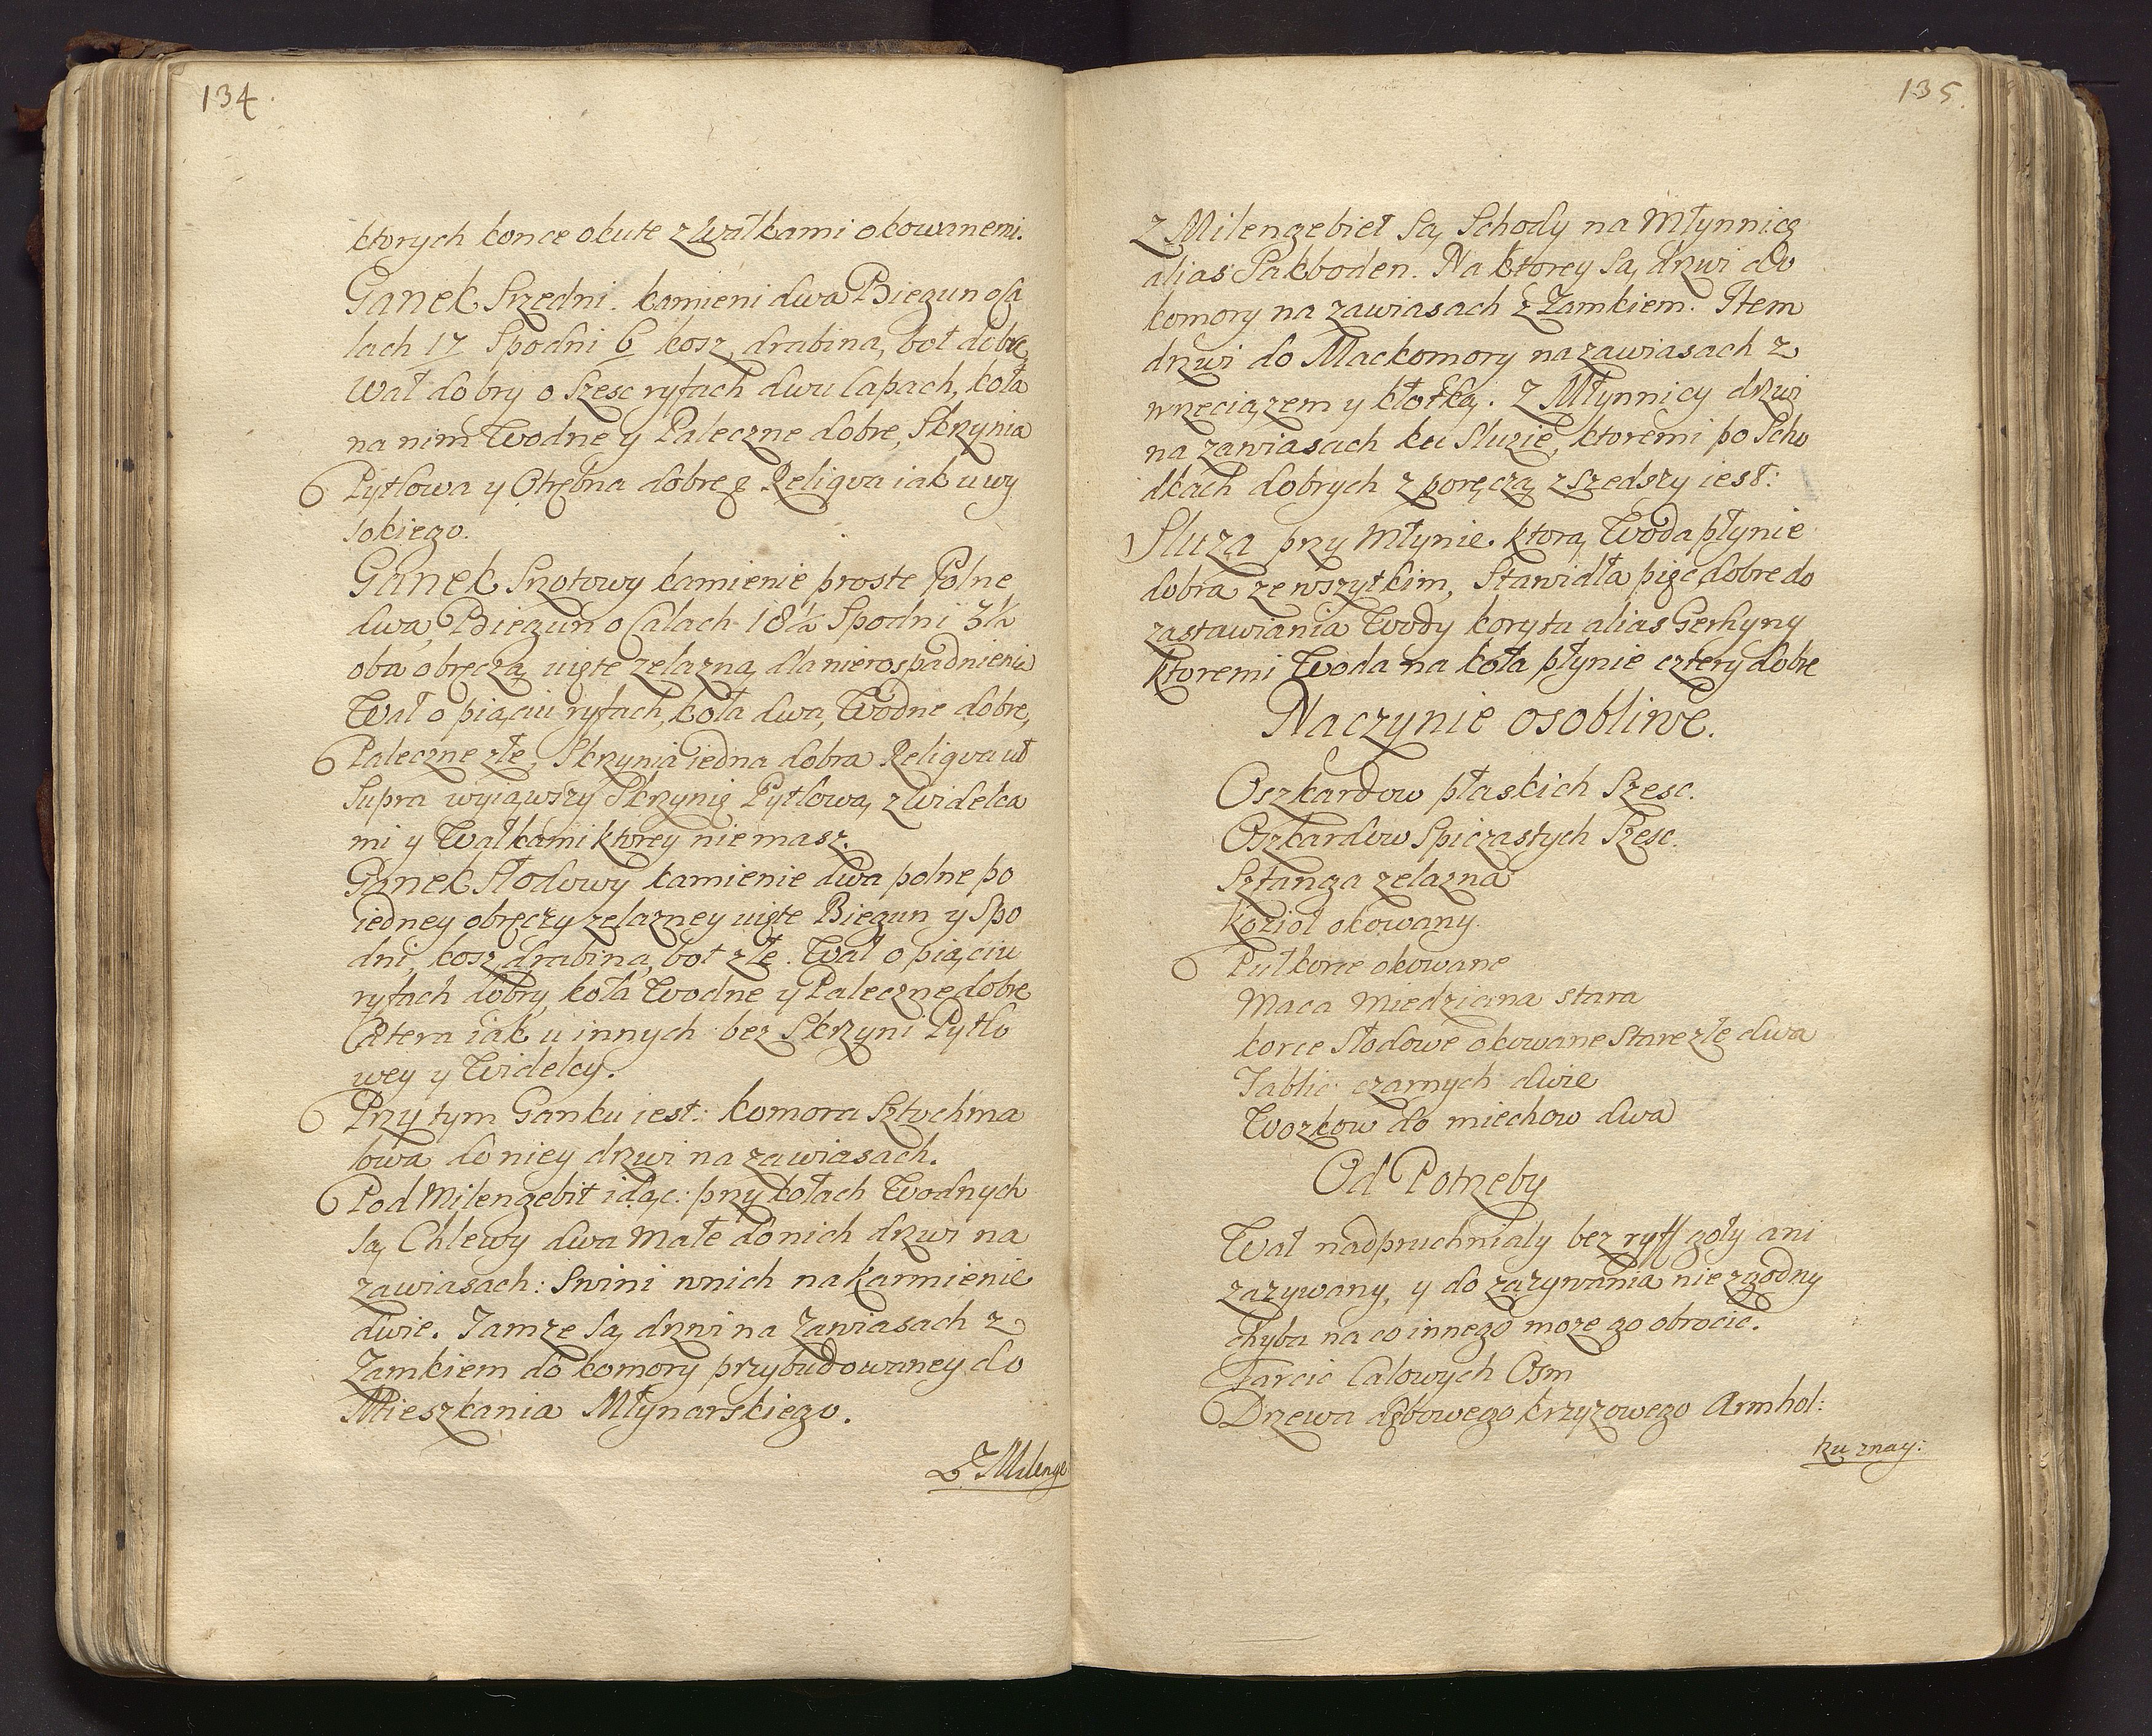 134.
ktorych konce okute z Wałkami okowanemi.
Ganek Srzedni. kamieni dwa Biegun o Ca
lach 17 Spodni 6 kosz, drabina, bot dobre
Wał dobry o Szesc ryfach dwu Capach, koła
na nim Wodne y Paleczne dobre, Skrzynia
Pytlowa y Otrębna dobre Religva iak u wy
sokiego.
Ganek Szrotowy kamienie proste Polne
dwa, Biegun o Calach 18½ Spodni 3½
oba obręczą uięte zelazną dla nierospadnienia
Wał o piąciu ryfach, koła dwa, Wodne dobre,
Paleczne złe, Skrzynia iedna dobra Religva ut
Supra wyiąwszy Skrzynię Pytlową z Widelca
mi y Wałkami ktorey niemasz.
Ganek Słodowy kamienie dwa polne po
iedney obręczy zelazney uięte Biegun y Spo
dni, kosz, drabina, bot złe. Wał o piąciu
ryfach dobry, koła Wodne y Paleczne dobre
Cætera iak u innych bez Skrzyni Pytlo
wey y Widelcy.
Przy tym Ganku iest: komora Sztochma
lowa do niey drzwi na zawiasach.
Pod Milengebit idąc: przy kołach Wodnych
Są Chlewy dwa Małe do nich drzwi na
zawiasach: Swini wnich na karmienie
dwie. Tamze Są drzwi na Zawiasach z
Zamkiem do komory przybudowaney do
Mieszkania Młynarskiego.
Z Milenge
135.
Z Milengebiet Są Schody na Młynnicę
alias Sakboden. Na ktorey Są drzwi do
komory na zawiasach z Zamkiem. Item
drzwi do Mackomory na zawiasach z
wrzeciązem y kłotką. Z Młynnicy drzwi
na zawiasach ku Sluzie, ktoremi po Scho
dkach dobrych z poręczą zszedszy iest:
Sluza przy Młynie. ktorą Woda płynie
dobra ze wszytkim, Stawidła pięc dobre do
zastawiania Wody koryta alias Gerhyny
ktoremi Woda na koła płynie cztery dobre
Naczynie osobliwe.
Oszkardow płaskich Szesc.
Oszkardow Spiczastych Szesc.
Sztanga zelazna
Kozioł okowany.
Pułkorce okowane
Maca Miedziana stara
korce Słodowe okowane Stare złe dwa
Tablic czarnych dwie
Wozkow do miechow dwa
Od Potrzeby
Wał nadpruchniały bez ryff goły ani
zazywany, y do zazywania nie zgodny
chyba na co innego moze go obrocic.
Tarcic Calowych Osm
Drzewa dębowego krzyzowego Armhol:
ku znay: